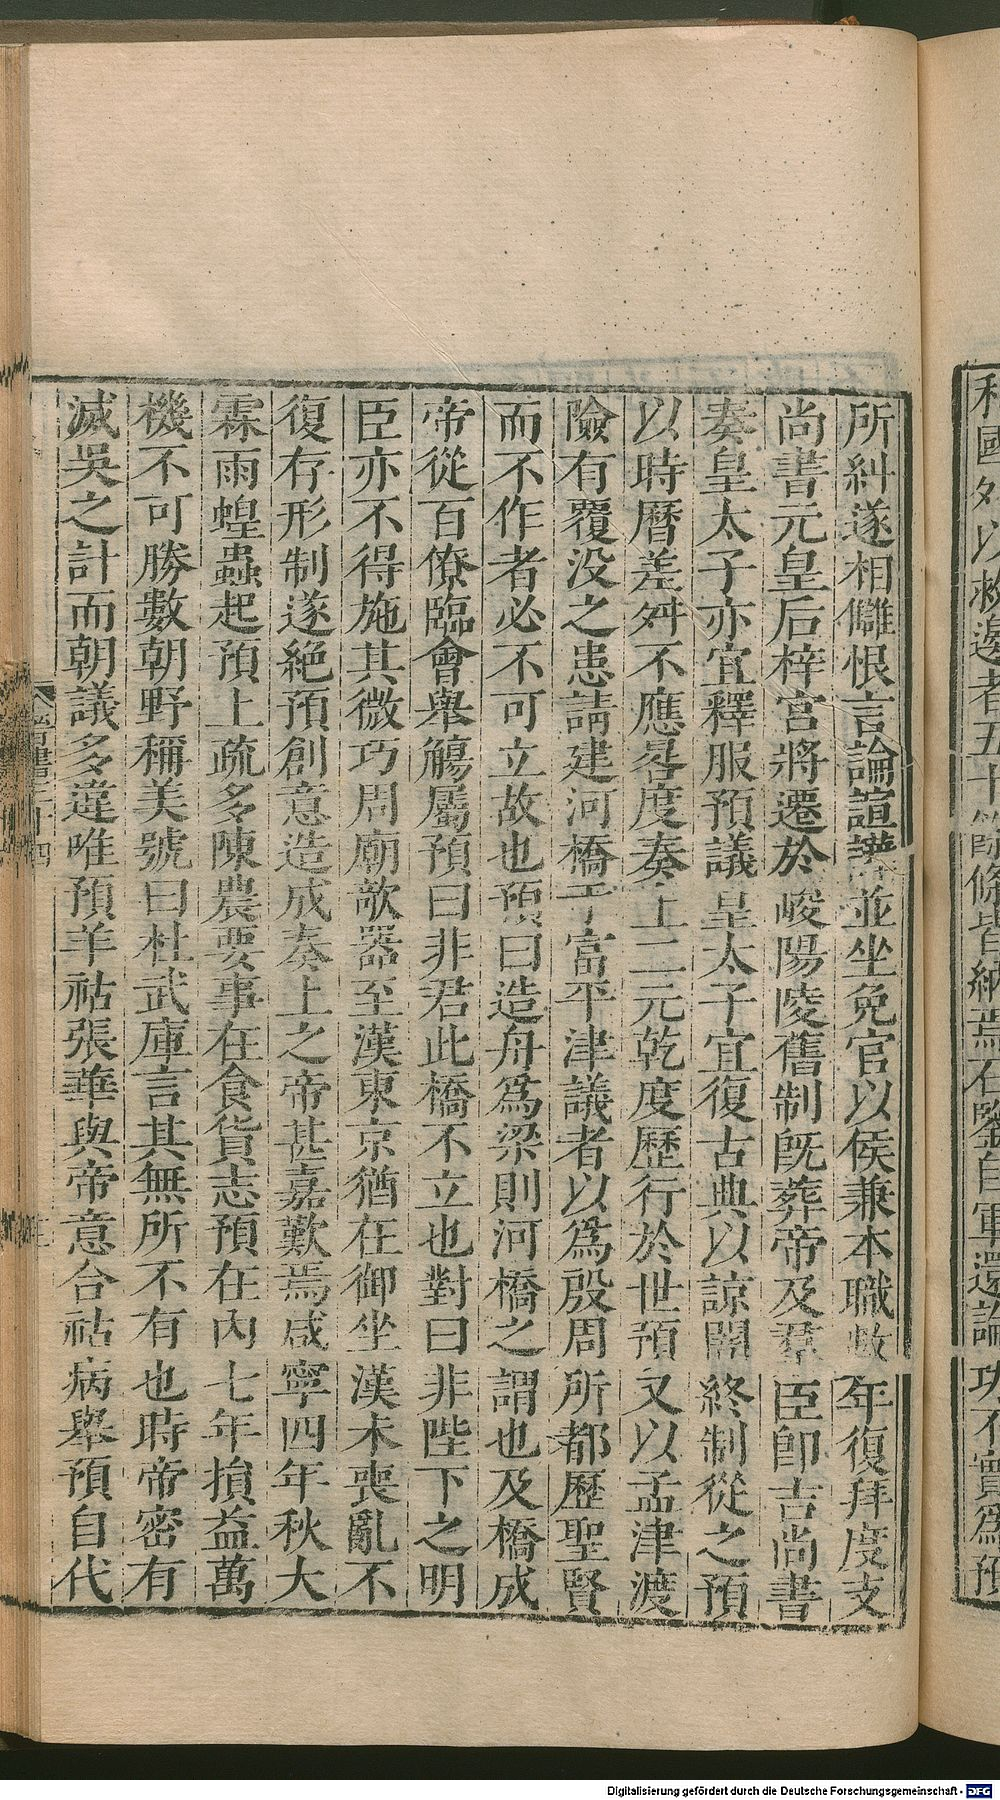 利國外以救邊者五十餘條皆納焉石鑒自軍還論功不實為預
所糾遂相讎恨言論諠譁並坐免官以侯兼本職數年復拜度支
尚書元皇后梓宮將遷於峻陽陵舊制旣葬帝及羣臣卽吉尚書
奏皇太子亦宜釋服預議皇太子宜復古典以諒闇終制從之預
以時曆差舛不應晷度奏上二元乾度歷行於世預又以孟津渡
險有覆没之患請建河橋于富平津議者以爲殷周所都歷聖賢
而不作者必不可立故也預曰造舟爲梁則河橋之謂也及橋成
帝從百僚臨會舉觴屬預曰非君此橋不立也對曰非陛下之明
臣亦不得施其微巧周廟欹器至漢東京猶在御坐漢末喪亂不
復存形制遂絶預創意造成奏上之帝甚嘉歎焉咸寧四年秋大
霖雨蝗蟲起預上疏多陳農要事在食貨志預在內七年損益萬
機不可勝數朝野稱美號曰杜武庫言其無所不有也時帝密有
滅吳之計而朝議多違唯預羊祜張華與帝意合祜病舉預自代
晉書三十四
Digitalisierung gefördert durch die Deutsche Forschungsgemeinschaft - DFG